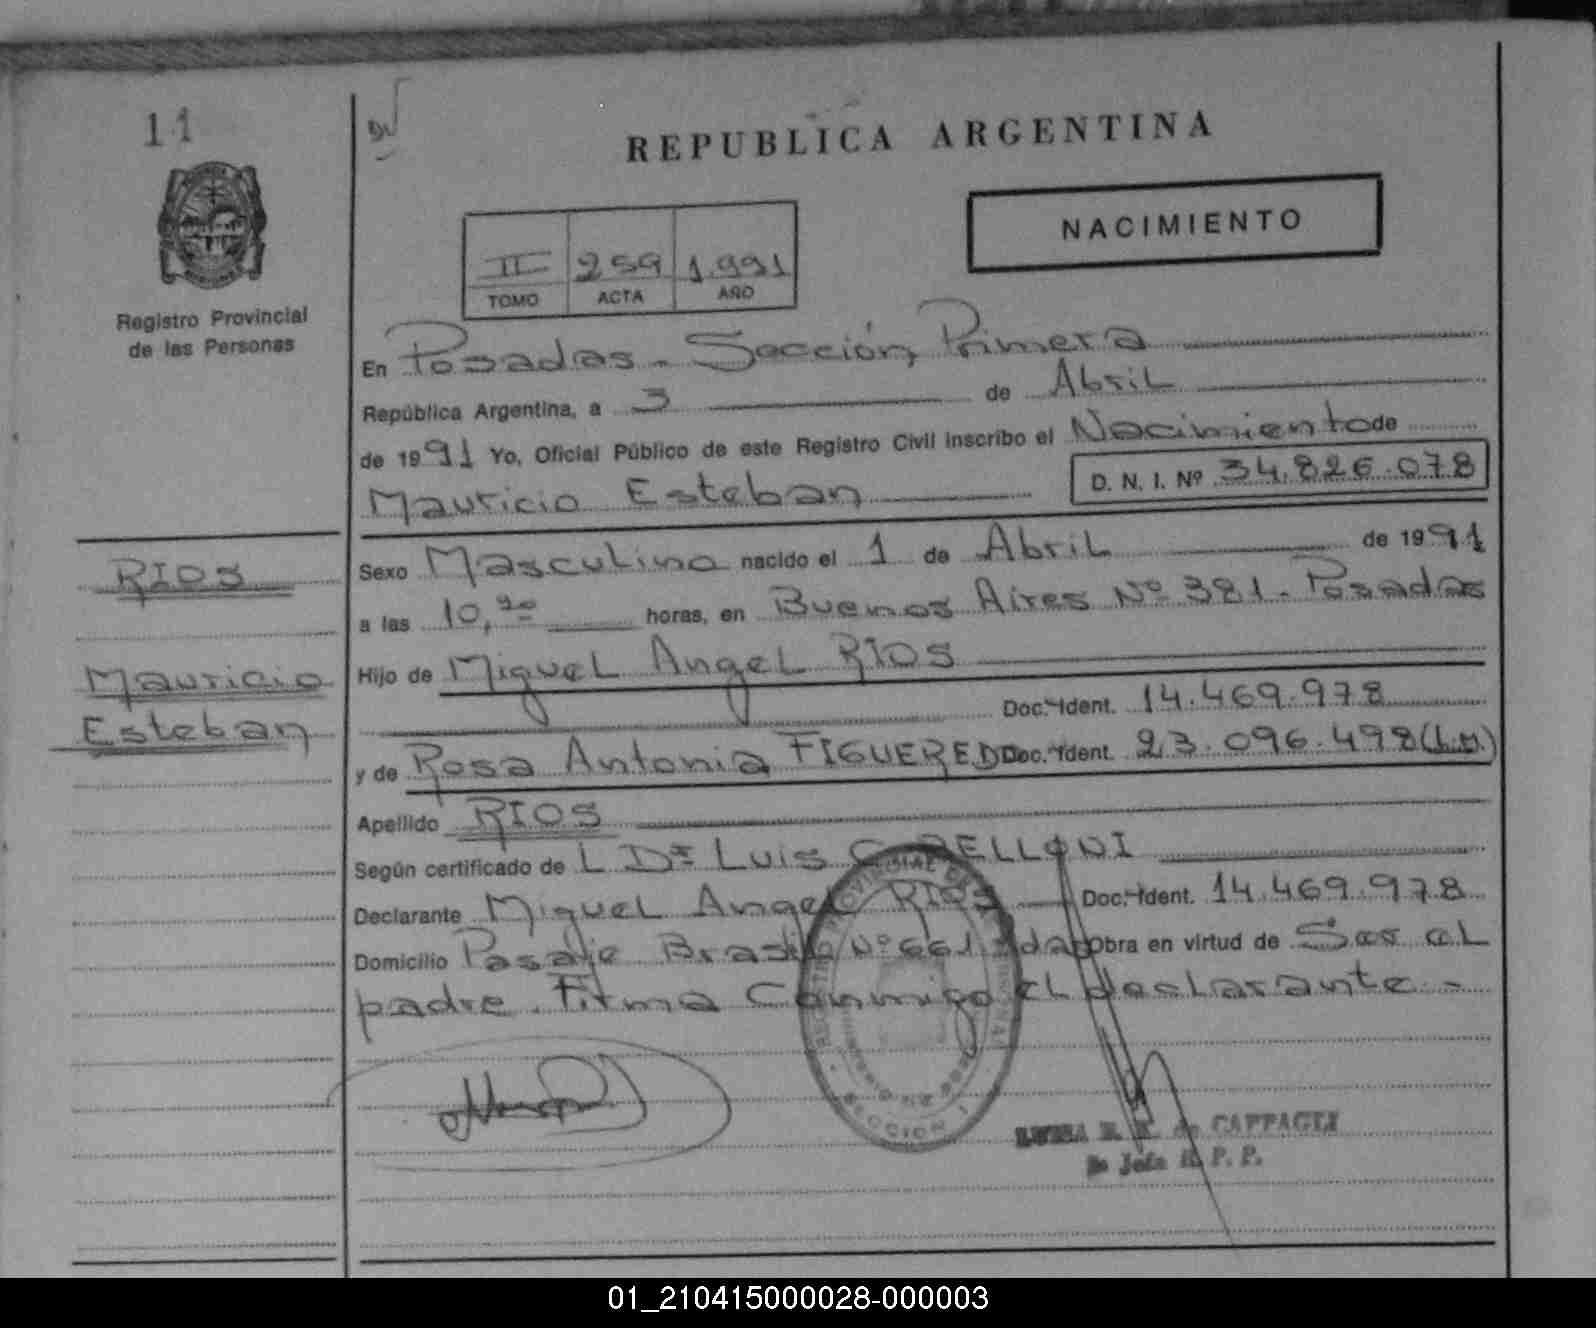 11
REPUBLICA ARGENTINA
NACIMIENTO
II 259 1.991
TOMO ACTA AÑO
Registro Provincial
de las Personas
En Posadas - Sección Primera
República Argentina, a 3 de Abril
de 1991 Yo, Oficial Público de este Registro Civil inscribo el Nacimiento de
Mauricio Esteban
D. N. I. Nº 34.826.078
RIOS
Mauricio
Esteban
Sexo Masculino nacido el 1 de Abril de 1991
a las 10, horas, en Buenos Aires Nº 381 - Posadas
Hijo de Miguel Angel RIOS
Doc. Ident. 14.469.978
y de Rosa Antonia FIGUEREDO Doc. Ident. 23.096.498
Apellido RIOS
Según certificado de L Dr Luis C. BELLONI
Declarante Miguel Angel RIOS Doc. Ident. 14.469.978
Domicilio Pasaje Brasil Nº 661 Pdas Obra en virtud de Ser el
padre. Firma Conmigo el declarante -
REGISTRO PROVINCIAL DE LAS
SECCION 1
de CAPPAGLI
R. P. P.
01_210415000028-000003